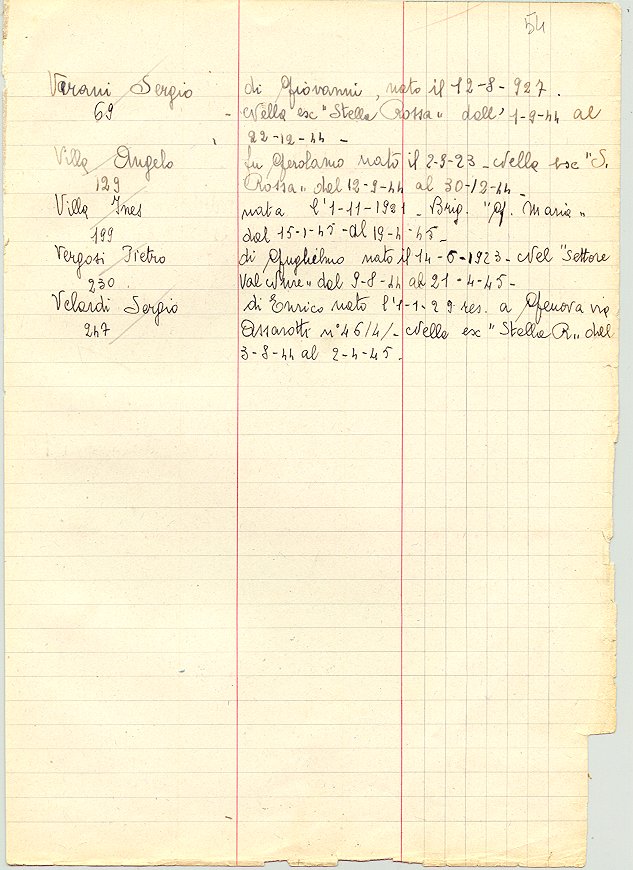 54
Varani Sergio di Giovanni, nato il 12-8-927.
69 Nella ex "Stella Rossa" dall' 1-9-44 al
22-12-44 -
Villa Angelo fu Gerolamo nato il 2-9-23 - Nella ex "S.
129 Rossa" dal 12-9-44 al 30-12-44 -
Villa Ines nata l'1-11-1921 - Brig. "G. Maria"
199 dal 15-1-45 - al 19-4-45 -
Vergosi Pietro di Guglielmo nato il 14-5-1923 - Nel "Settore
230. Val Nure" dal 9-8-44 al 21-4-45 -
Velardi Sergio di Enrico nato l'1-1-29 res. a Genova via
247 Assarotti n° 46/4/- Nella ex "Stella R" dal
3-8-44 al 2-4-45.